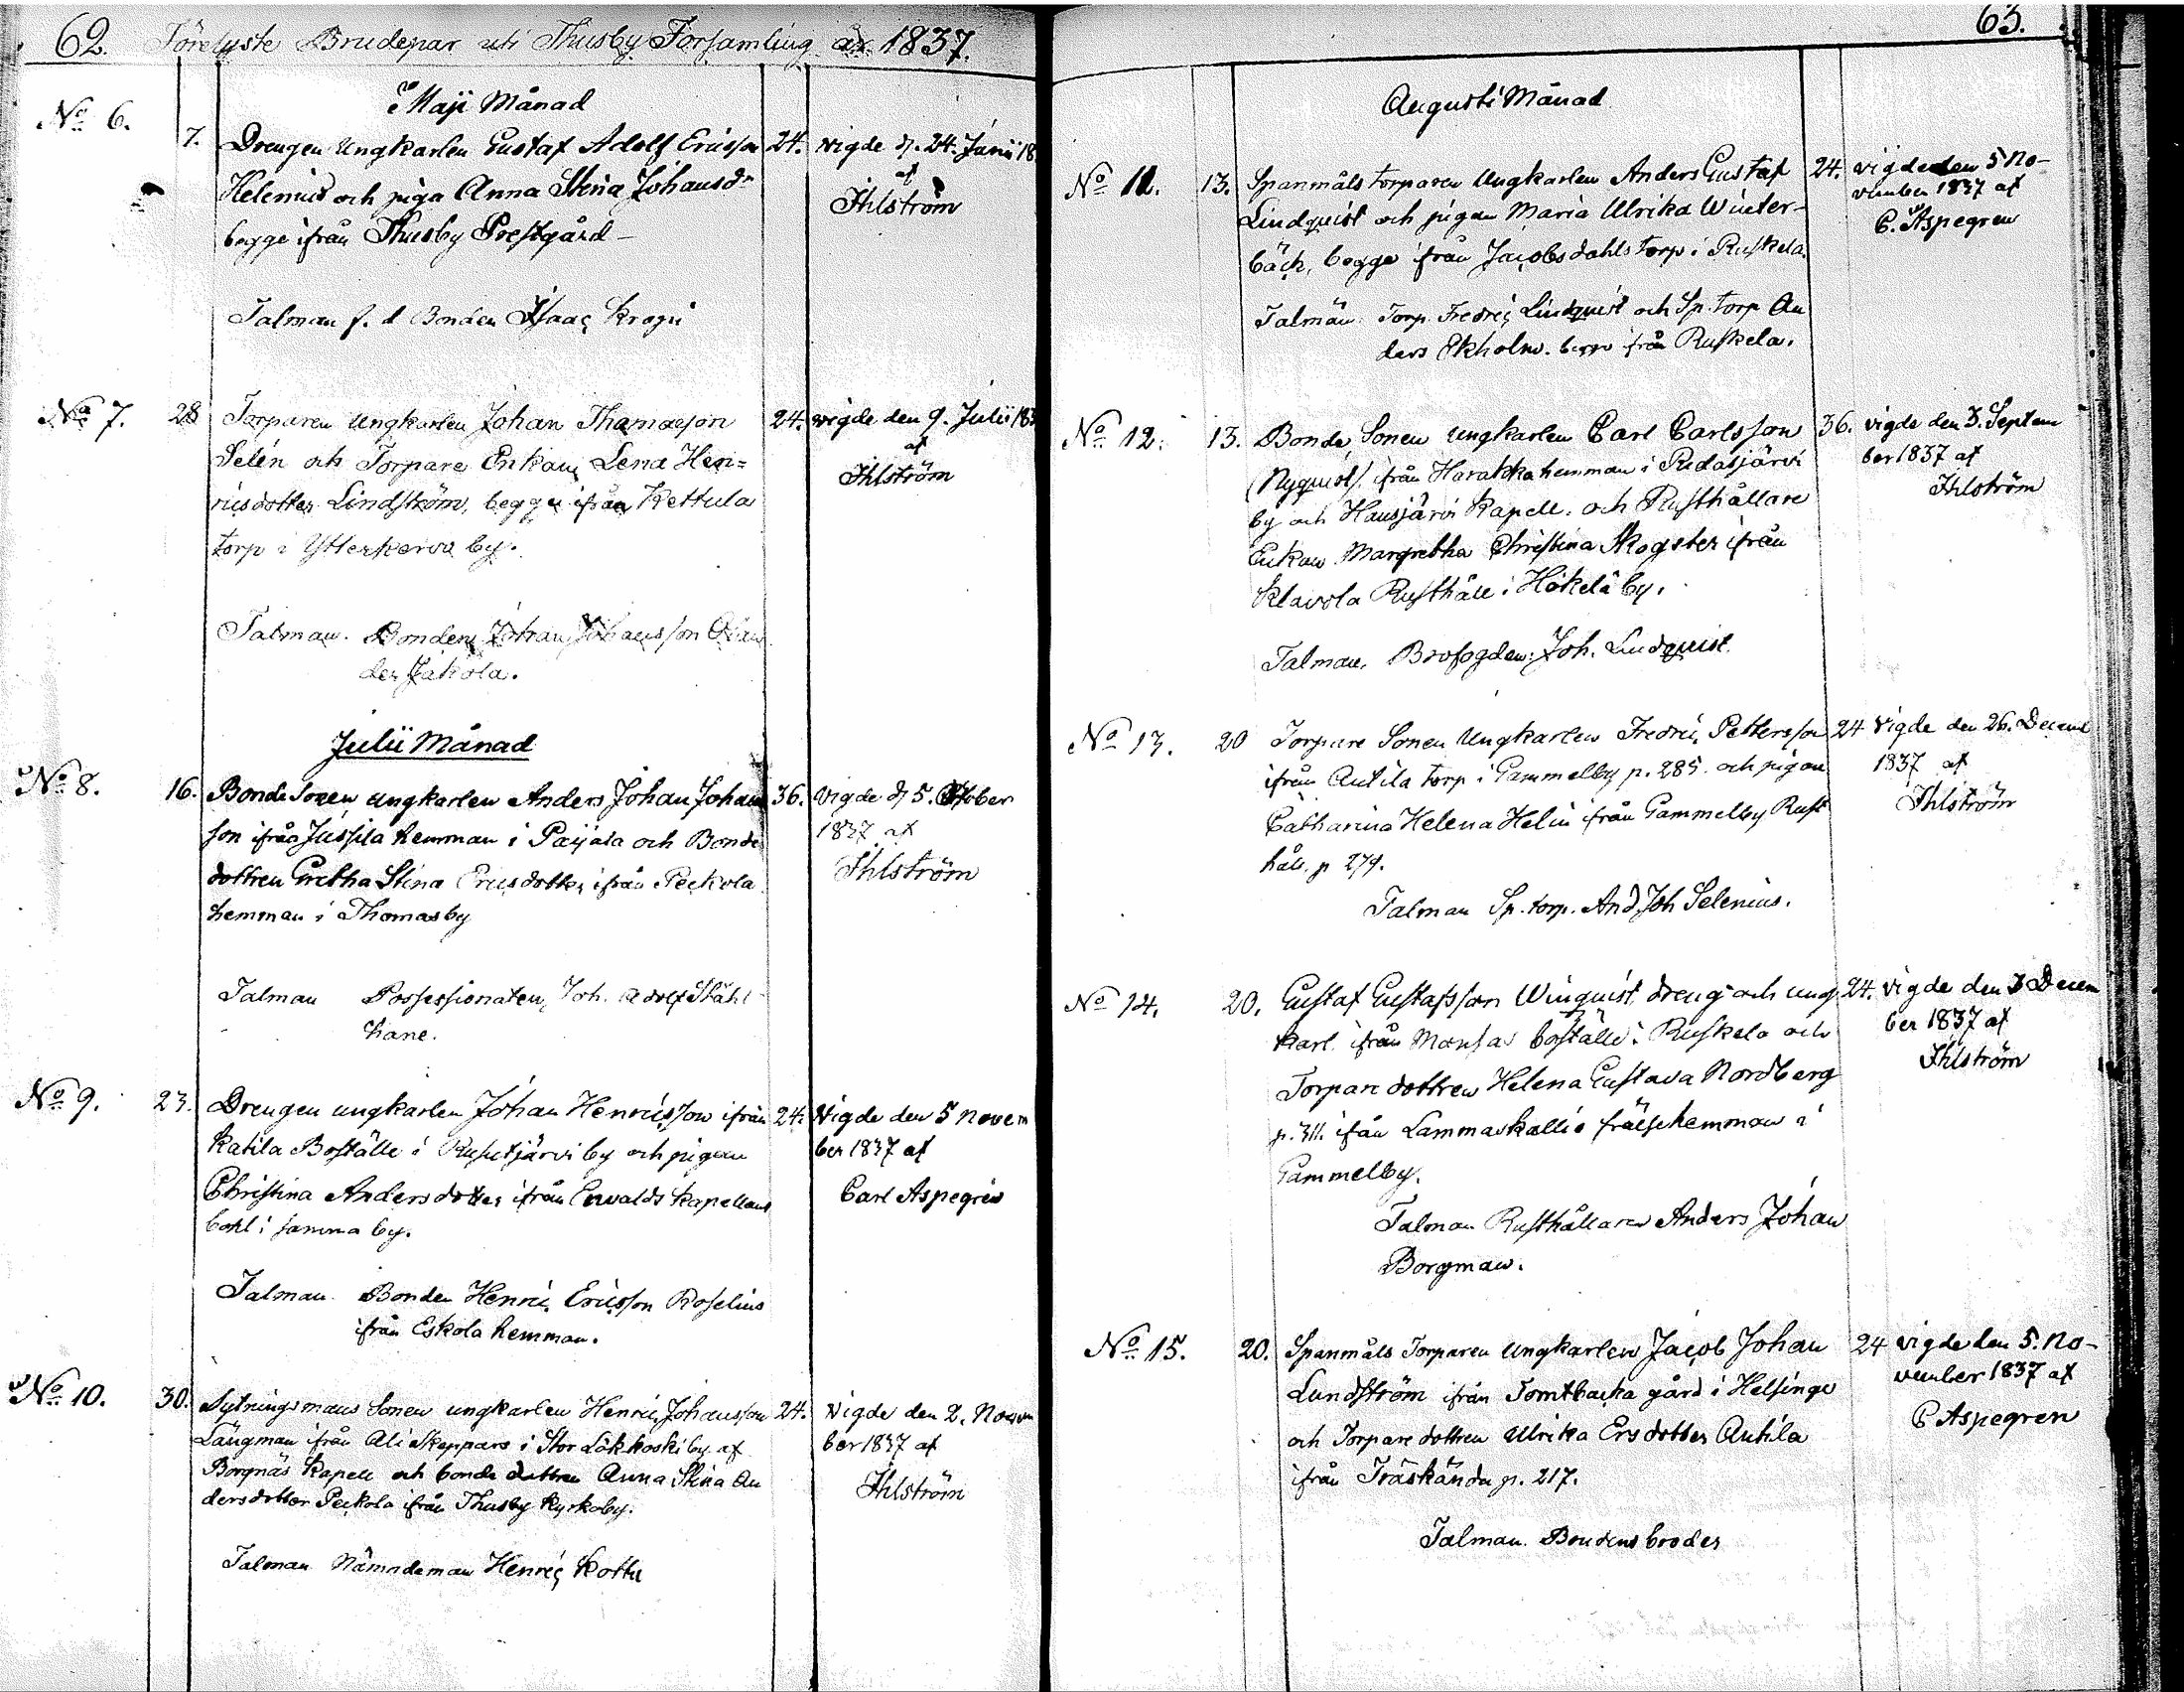 62. Förelyste Brudepar uti Thusby Församling år 1837.
Maji Månad
No 6. 7. Drengen Ungkarlen Gustaf Adolf Ericsson 24. vigde d. 24. Junii 18
Helenius och piga Anna Stina Johansdr af
begge ifrån Thusby Prestgård – Ihlström
Talman f. d Bonden Isaac Krogii
No 7. 28 Torparen Ungkarlen Johan Thomasson 24. vigde den 9. Julii 183
Selén och Torpare Enkan Lena Hen= af
ricsdotter Lindström, begge ifrån Kettula Ihlström
torp i Ytterkerva by.
Talman. Bonden Johan Johansson
der Jakola.
Julii Månad
No 8. 16. Bonde Sonen ungkarlen Anders Johan Johans 36. Vigde d 5. October
son ifrån Jussila hemman i Paijala och Bonde 1837 af
dottren Gretha Stina Ericsdotter ifrån Peckola Ihlström
hemman i Thomasby
Talman Possessionaten, Joh. Adolf Ståhl
hane.
No 9. 23. Drengen ungkarlen Johan Henricsson ifrån 24. Vigde den 5 Novem
Katila Boställe i Rusutjärvi by och pigan ber 1837 af
Christina Andersdotter ifrån Ewalds Kapellans Carl Aspegrén
bohl i samma by.
Talman. Bonden Henric Ericsson Roselius
ifrån Eskola hemman.
No 10. 30. Sytningsmans Sonen ungkarlen Henric Johansson 24. Vigde den 2. Novem
Långman ifrån Ali Skeppars i Stor Lökkoski by af ber 1837 af
Borgnäs Kapell och bonde dottren Anna Stina An Ihlström
dersdotter Peckola ifrån Thusby Kyrkoby.
Talman Nämndeman Henric Kottu
63.
Augusti Månad
No 11. 13. Spanmåls torparen Ungkarlen Anders Gustaf 24. vigde den 5 No-
Lindquist och pigan Maria Ulrika Winter- vember 1837 af
bäck, begge ifrån Jacobsdahls torp i Ruskela. C. Aspegren
Talmän Torp. Fredric Lindquist och Sp. torp An
ders Ekholm. begge från Ruskela.
No 12. 13. Bonde Sonen ungkarlen Carl Carlsson 36. vigde den 3. Septem
(Nyquist) ifrån Harakka hemman i Ridasjärvi ber 1837 af
by och Hausjärvi Kapell. och Rusthållare Ihlström
Enkan Margretha Christina Skogster ifrån
Klavola Rusthåll i Hökelä by.
Talman, Brofogden Joh. Lindquist.
No 13. 20 Torpare Sonen Ungkarlen Fredric Pettersson 24 Vigde den 26. Decemb
ifrån Antila torp i Gammelby p. 285. och pigan 1837 af
Catharina Helena Helin ifrån Gammelby Rust Ihlström
håll. p 274.
Talman Sp. torp. And Joh Selenius.
No 14. 20. Gustaf Gustafsson Winquist dreng och ung 24. Vigde den 3 Decem
karl. ifrån Mansas boställe i Ruskela och ber 1837 af
Torpare dottren Helena Gustava Nordberg Ihlström
p. 311. ifrån Lammaskallio frälsehemman i
Gammelby.
Talman Rusthållaren Anders Johan
Borgman.
No 15. 20. Spanmåls Torparen Ungkarlen Jacob Johan 24 vigde den 5. No-
Lundström ifrån Tomtbacka gård i Helsinge vember 1837 af
och Torpare dottren Ulrika Ersdotter Antila C Aspegren
ifrån Träskända p. 217.
Talman. Brudens broder